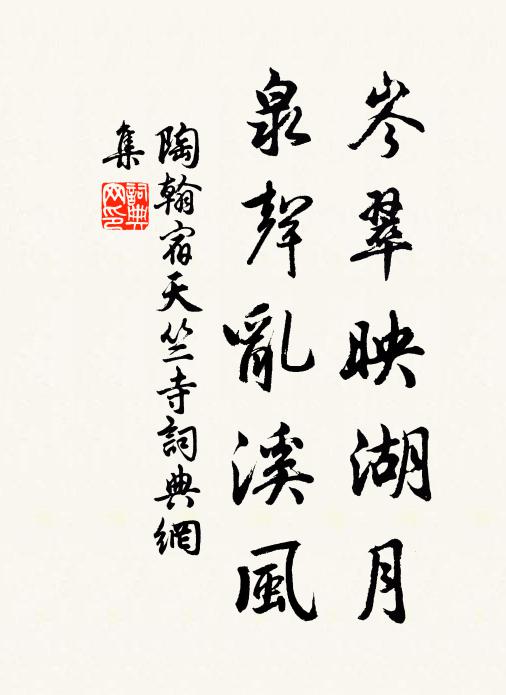 岑翠映湖月
泉聲亂溪風
陶翰宿天竺寺詞典網
集
詞典
网印